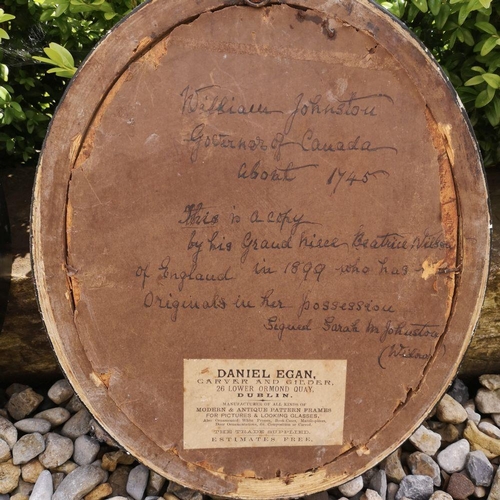 William Johnston
Governor of Canada
about 1745
This is a copy
by his Grand Niece Beatrice Wilson
of England in 1899 who has
Originals in her possession
Signed Sarah M Johnston
(Widow)
DANIEL EGAN,
CARVER AND GILDER,
26 LOWER ORMOND QUAY,
DUBLIN.
MANUFACTURER OF ALL KINDS OF
MODERN & ANTIQUE PATTERN FRAMES
FOR PICTURES & LOOKING GLASSES,
THE TRADE SUPPLIED.
ESTIMATES FREE.